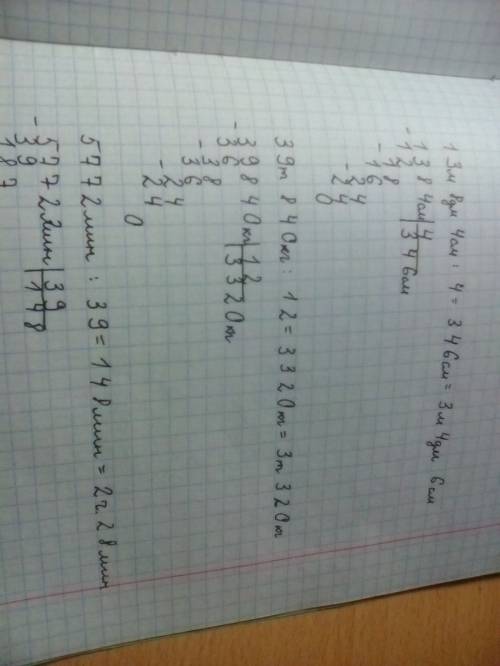 13м 8дм 4см : 4 = 346см = 3м 4дм 6см
- 1384см | 4
12 346см
18
- 16
24
- 24
0
39т 840кг : 12 = 3320кг = 3т 320кг
- 39840кг | 12
36 3320кг
38
- 36
24
- 24
0
5772мин : 39 = 148мин = 2ч 28мин
- 5772мин | 39
39 148
187